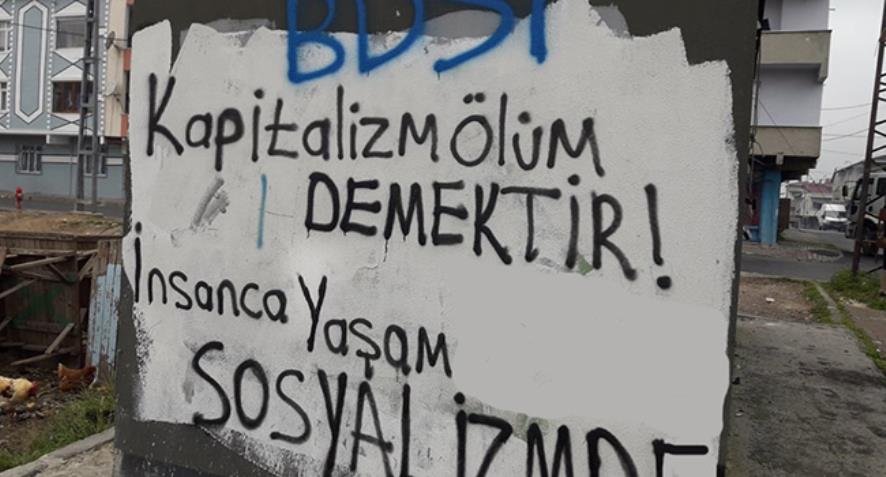 BDSP
Kapitalizm ölüm
DEMEKTİR!
İnsanca Yaşam
SOSYALİZMDE